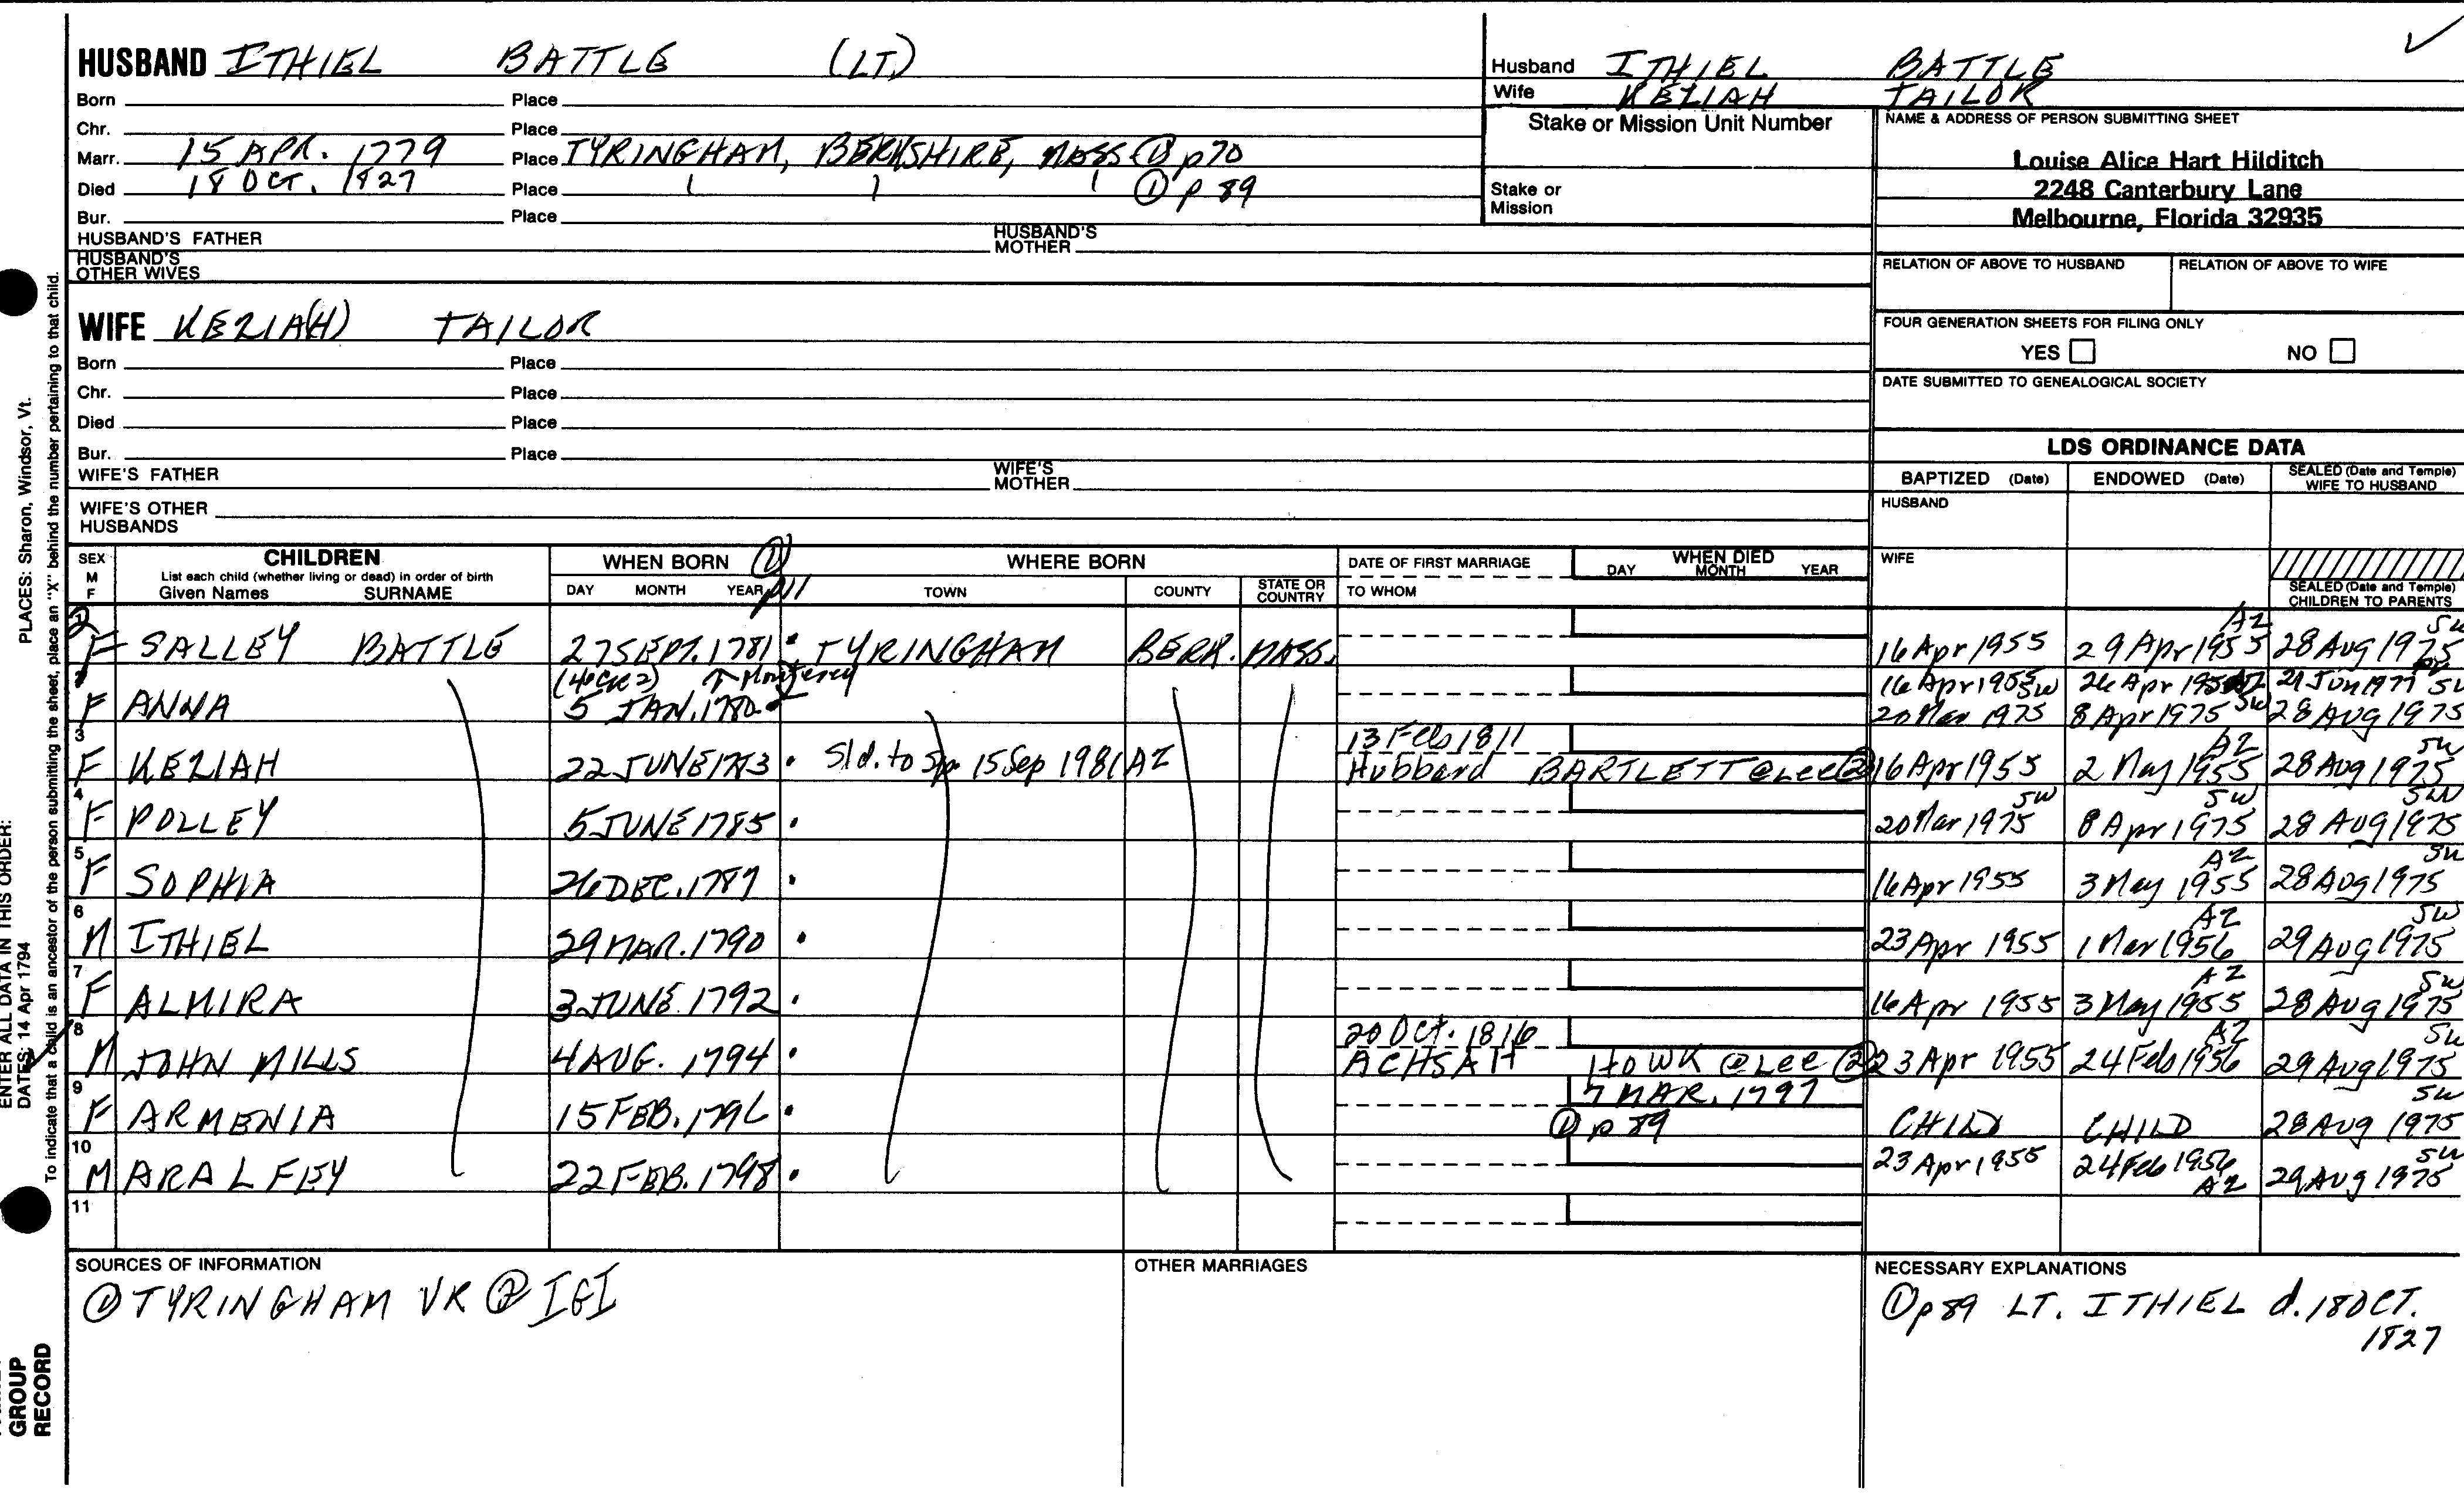 HUSBAND ITHIEL BATTLE (LT.)
Born Place
Chr. Place
Marr. 15 APR. 1779 Place TYRINGHAM, BERKSHIRE, MASS ① p70
Died 18 OCT. 1827 Place ① p 89
Bur. Place
HUSBAND'S FATHER HUSBAND'S MOTHER
HUSBAND'S OTHER WIVES
WIFE KEZIA(H) TAILOR
Born Place
Chr. Place
Died Place
Bur. Place
WIFE'S FATHER WIFE'S MOTHER
WIFE'S OTHER HUSBANDS
Husband ITHIEL BATTLE
Wife KEZIAH TAILOR
Stake or Mission Unit Number
Stake or Mission
NAME & ADDRESS OF PERSON SUBMITTING SHEET
Louise Alice Hart Hilditch
2248 Canterbury Lane
Melbourne, Florida 32935
RELATION OF ABOVE TO HUSBAND RELATION OF ABOVE TO WIFE
FOUR GENERATION SHEETS FOR FILING ONLY
YES NO
DATE SUBMITTED TO GENEALOGICAL SOCIETY
LDS ORDINANCE DATA
BAPTIZED (Date) ENDOWED (Date) SEALED (Date and Temple) WIFE TO HUSBAND
HUSBAND
WIFE
SEALED (Date and Temple) CHILDREN TO PARENTS
SEX M F CHILDREN WHEN BORN ① p11 WHERE BORN DATE OF FIRST MARRIAGE WHEN DIED
List each child (whether living or dead) in order of birth
Given Names SURNAME DAY MONTH YEAR TOWN COUNTY STATE OR COUNTRY TO WHOM DAY MONTH YEAR
2 F SALLEY BATTLE 27 SEPT. 1781 TYRINGHAM BERK. MASS. 16 Apr 1955 29 Apr 1955 AZ 28 Aug 1975 SW
16 Apr 1955 26 Apr 1955 AZ 21 Jun 1977
F ANNA 5 JAN. 1780 20 Mar 1975 SW 8 Apr 1975 SW 28 Aug 1975 SW
3 F KEZIAH 22 JUNE 1783 Sld. to Sp 15 Sep 1981 AZ 13 Feb 1811 Hubbard BARTLETT @ Lee ② 16 Apr 1955 2 May 1955 AZ 28 Aug 1975 SW
4 F POLLEY 5 JUNE 1785 20 Mar 1975 SW 8 Apr 1975 SW 28 Aug 1975 SW
5 F SOPHIA 26 DEC. 1787 16 Apr 1955 3 May 1955 AZ 28 Aug 1975 SW
6 M ITHIEL 29 MAR. 1790 23 Apr 1955 1 Mar 1956 AZ 29 Aug 1975 SW
7 F ALMIRA 3 JUNE 1792 16 Apr 1955 3 May 1955 AZ 28 Aug 1975 SW
8 M JOHN MILLS 4 AUG. 1794 20 Oct. 1816 ACHSAH HOWK @ Lee ② 23 Apr 1955 24 Feb 1956 AZ 29 Aug 1975 SW
9 F ARMENIA 15 FEB. 1796 7 MAR. 1797 ① p 89 CHILD CHILD 28 Aug 1975 SW
10 M ARA LFEY 22 FEB. 1798 23 Apr 1955 24 Feb 1956 AZ 29 Aug 1975 SW
11
SOURCES OF INFORMATION
① TYRINGHAM VR ② IGI
OTHER MARRIAGES
NECESSARY EXPLANATIONS
① p89 LT. ITHIEL d. 18 OCT.
1827
ENTER ALL DATA IN THIS ORDER:
DATES: 14 Apr 1794 PLACES: Sharon, Windsor, Vt.
To indicate that a child is an ancestor of the person submitting the sheet, place an "X" behind the number pertaining to that child.
GROUP
RECORD